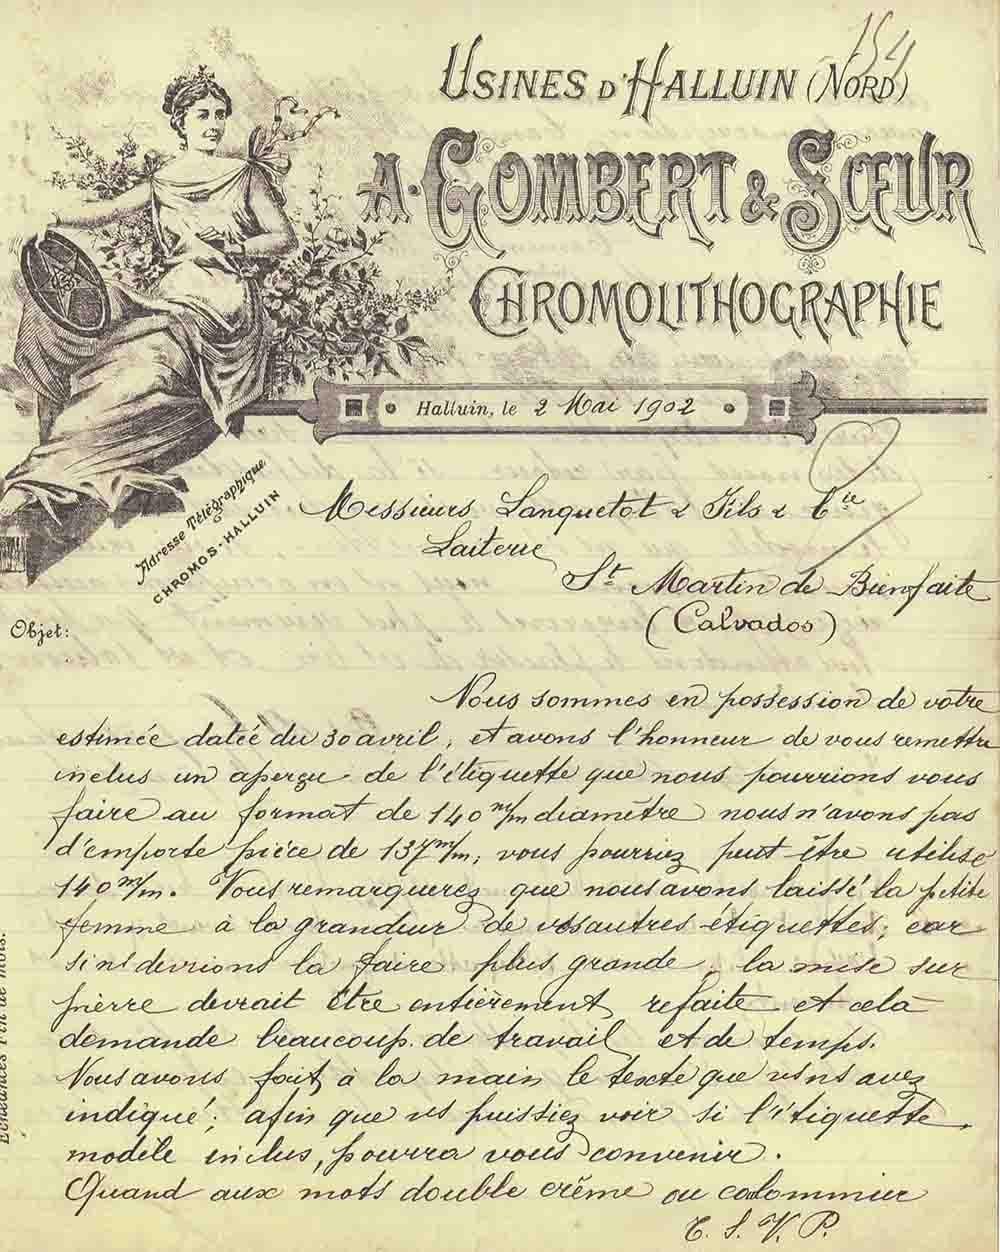 154
USINES D'HALLUIN (NORD)
A. GOMBERT & SŒUR
CHROMOLITHOGRAPHIE
Halluin, le 2 Mai 1902
Adresse Télégraphique
CHROMOS-HALLUIN
Messieurs Lanquetot & Fils & Cie
Laiterie
St Martin de Bienfaite
(Calvados)
Objet:
Nous sommes en possession de votre
estimée datée du 30 avril, et avons l'honneur de vous remettre
inclus un aperçu de l'étiquette que nous pourrions vous
faire au format de 140 m/m diamètre nous n'avons pas
d'emporte pièce de 137 m/m, vous pourriez peut être utilisé
140 m/m. Vous remarquerez que nous avons laissé la petite
femme à la grandeur de vos autres étiquettes; car
si ns devrions la faire plus grande, la mise sur
pierre devrait être entièrement refaite et cela
demande beaucoup de travail et de temps.
Nous avons fait à la main le texte que vs ns avez
indiqué; afin que vs puissiez voir si l'étiquette
modèle inclus, pourra vous convenir.
Quand aux mots double crême ou coulommier
T. S. V. P.
Echéances Fin de mois.